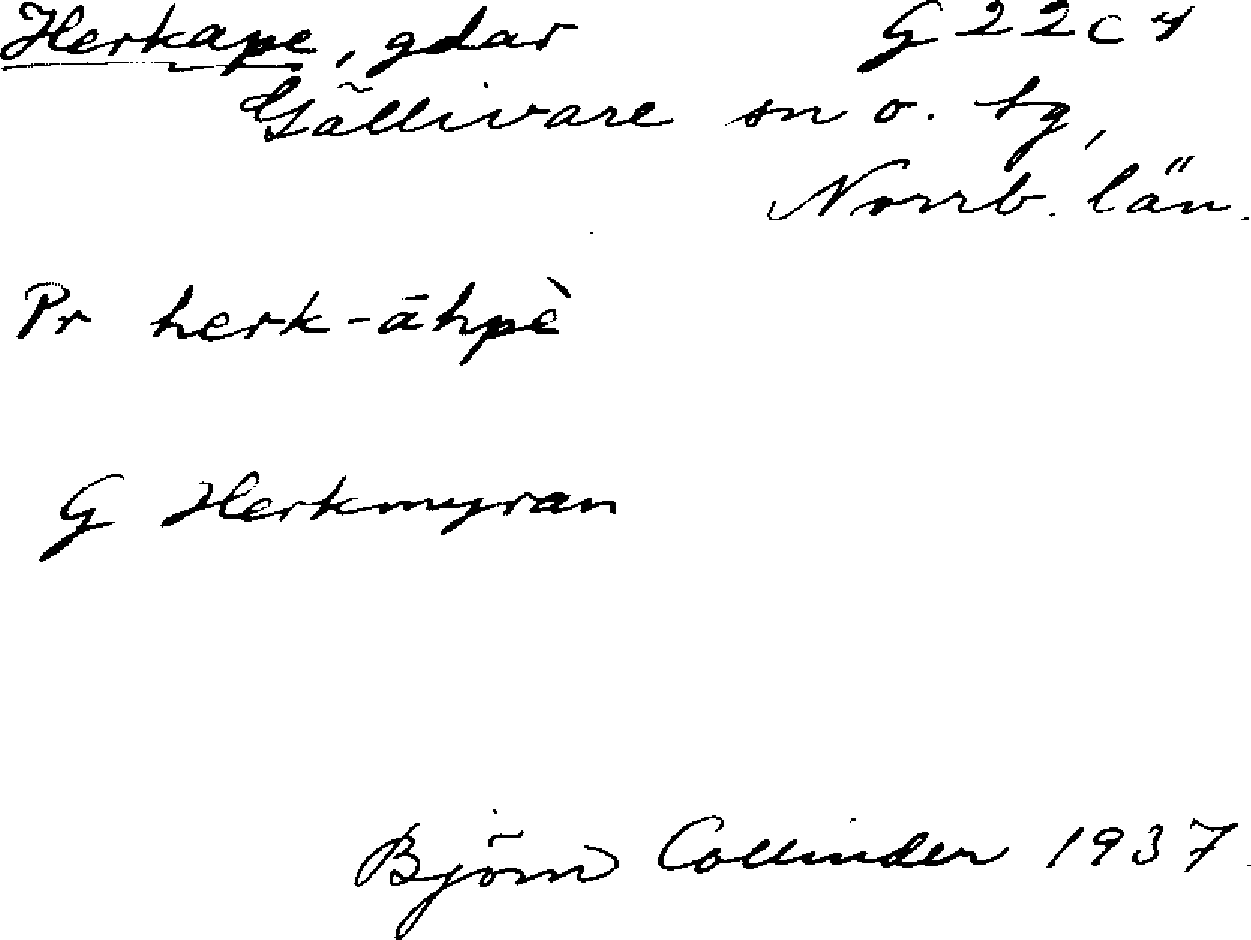 Herkape, gdar G 22 c 4
Gällivare sn o. tg,
Norrb. län.
Pr herk-āhpè
G Herkmyran
Björn Collinder 1937.